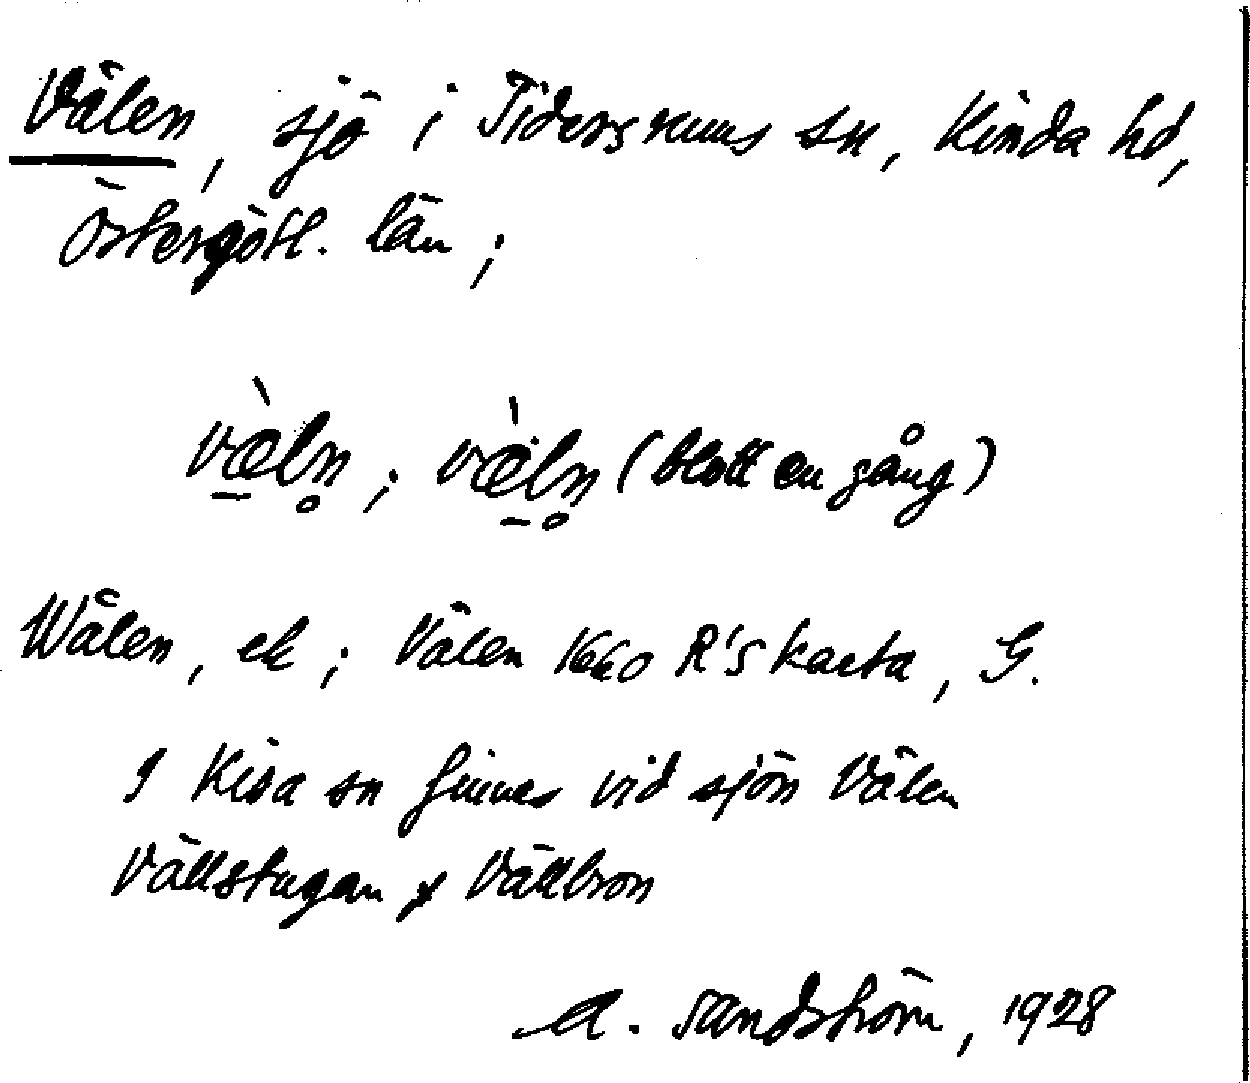 Välen, sjö i Tidersrums sn, Kinda hd,
Östergötl. län;
væ̠̀ln̥; væ̠̀ln̥ (blott en gång)
Wålen, ek; Välen 1660 R's karta, G.
I Kisa sn finnes vid sjön Välen
Vällstugan y Vällbron
A. Sandström, 1928